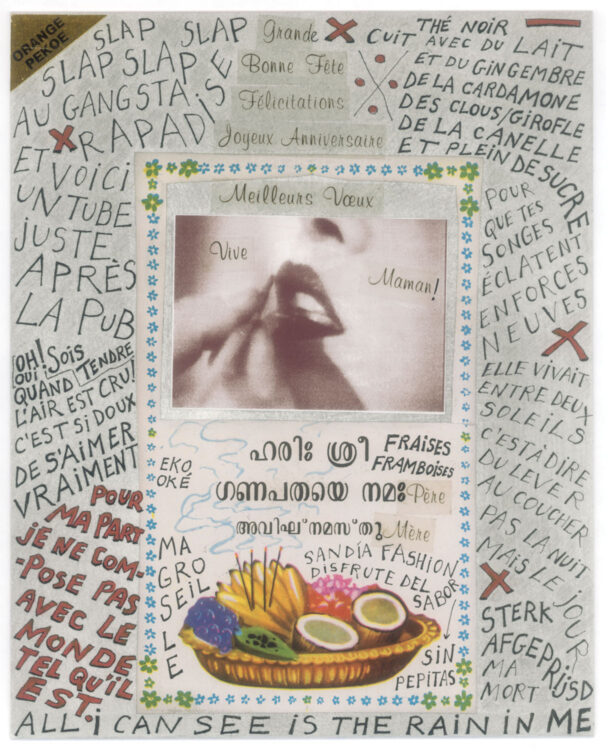 ORANGE
PEKOE
SLAP SLAP
SLAP SLAP
AU GANGSTA
RAPADISE
ET VOICI
UN TUBE
JUSTE
APRÈS
LA PUB
OH!
OUI! SOIS
QUAND TENDRE
L'AIR EST CRU!
C'EST SI DOUX
DE S'AIMER
VRAIMENT
POUR
MA PART
JE NE COM-
-POSE PAS
AVEC LE
MONDE
TEL QU'IL
EST.
Grande
Bonne Fête
Félicitations
Joyeux Anniversaire
Meilleurs Vœux
Vive
Maman!
CUIT
THÉ NOIR
AVEC DU LAIT
ET DU GINGEMBRE
DE LA CARDAMONE
DES CLOUS/GIROFLE
DE LA CANELLE
ET PLEIN DE SUCRE
POUR
QUE TES
SONGES
ÉCLATENT
ENFORCES
NEUVES
ELLE VIVAIT
ENTRE DEUX
SOLEILS
C'EST À DIRE
DU LEVER
AU COUCHER
PAS LA NUIT
MAIS LE JOUR
STERK
AFGEPRIJSD
MA
MORT
ഹരിഃ ശ്രീ
FRAISES
FRAMBOISES
EKO
OKÉ
ഗണപതയെ നമഃ
Père
അവിഘ്നമസ്തു
Mère
MA
GROSEILLE
SANDÍA FASHION
DISFRUTE DEL
SABOR
SIN
PEPITAS
ALL i CAN SEE IS THE RAIN IN ME